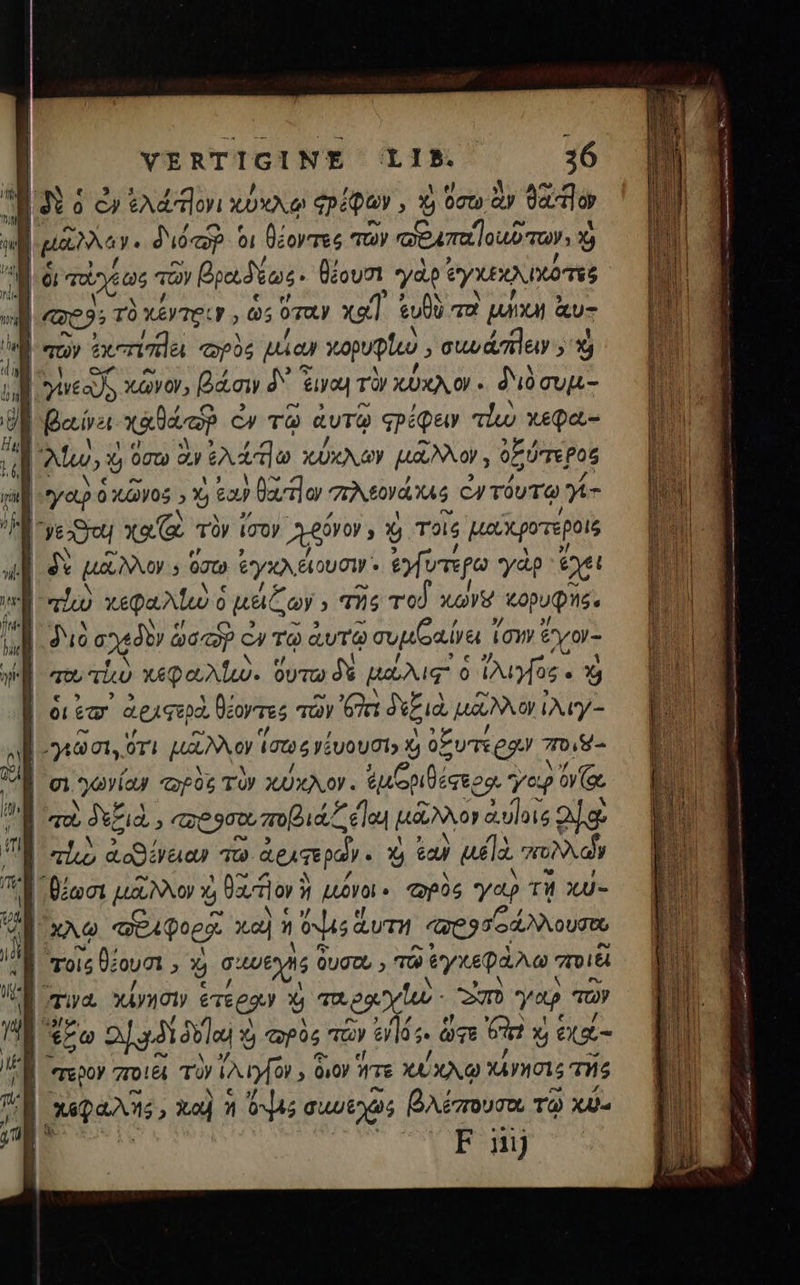 VERTIGINE LIB. 36
δὲ ὁ ἐν ἐλάττονι κύκλῳ στρέφων, καὶ ὅσῳ ἂν θᾶττον
μᾶλλον. διόπερ οἱ θέοντες τῶν περιπατούντων, καὶ
οἱ ταχέως τῶν βραδέως. θέουσι γὰρ ἐγκεκλικότες
πρὸς τὸ κέντρον, ὡς ὅταν κατ' εὐθὺ τὰ μήκη αὐ-
τῶν ἐκπίπτει πρὸς μίαν κορυφὴν, συνάπτειν, καὶ
γίνεσθαι κῶνον, βάσιν δ' εἶναι τὸν κύκλον. διὸ συμ-
βαίνει καθάπερ ἐν τῷ αὐτῷ στρέφειν τὴν κεφα-
λὴν, καὶ ὅσῳ ἂν ἐλάττω κύκλων μᾶλλον, ὀξύτερος
γὰρ ὁ κῶνος, καὶ ἐὰν θᾶττον πλεονάκις ἐν τούτῳ γί-
νεσθαι κατὰ τὸν ἴσον χρόνον, καὶ τοῖς μακροτέροις
δὲ μᾶλλον, ὅσῳ ἐγκλείουσιν. ἐγγυτέρω γὰρ ἔχει
τὴν κεφαλὴν ὁ μείζων, τῆς τοῦ κώνου κορυφῆς.
διὸ σχεδὸν ὥσπερ ἐν τῷ αὐτῷ συμβαίνει ἴσην ἔχον-
τα τὴν κεφαλὴν. οὕτω δὲ μάλιστ' ὁ ἴλιγγος. καὶ
οἱ ἐπ' ἀριστερὰ θέοντες τῶν ἐπὶ δεξιὰ μᾶλλον ἰλιγ-
γιῶσι, ὅτι μᾶλλον ἴσως νεύουσι, καὶ ὀξυτέραν ποιοῦ-
σι γωνίαν πρὸς τὸν κύκλον. ἐμβριθέστερα γὰρ ὄντα
τὰ δεξιὰ, προσαποβιάζεται μᾶλλον αὐτοῖς διὰ
τὴν ἀσθένειαν τῶ ἀριστερῶν. καὶ ἐὰν μετὰ πολλῶν
θέωσι μᾶλλον καὶ θᾶττον ἢ μόνοι. πρὸς γὰρ τῇ κύ-
κλῳ περιφορᾷ καὶ ἡ ὄψις αὐτὴ προσβάλλουσα
τοῖς θέουσι, καὶ συνεχὴς οὖσα, τῷ ἐγκεφάλῳ ποιεῖ
τινα κίνησιν ἑτέραν καὶ ταραχὴν. ὑπὸ γὰρ τῶν
ἔξω διαδίδοται καὶ πρὸς τῶν ἐντός. ὥστε ἐπὶ καὶ ἑκά-
τερον ποιεῖ τὸν ἴλιγγον, οἷον ἥτε κύκλῳ κίνησις τῆς
κεφαλῆς, καὶ ἡ ὄψις συνεχῶς βλέπουσα τῷ κύ-
F iiij